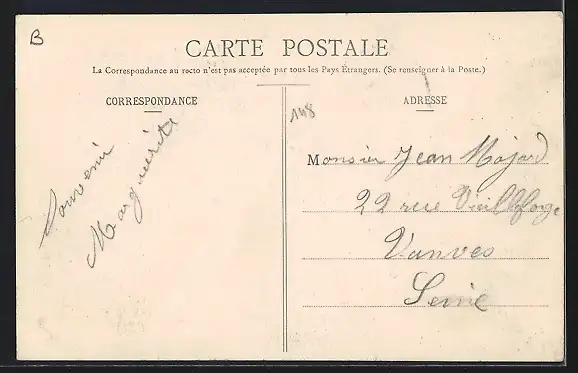 B
CARTE POSTALE
La Correspondance au recto n'est pas acceptée par tous les Pays Étrangers. (Se renseigner à la Poste.)
CORRESPONDANCE
Souvenir
Marguerite
148
ADRESSE
Monsieur Jean Majard
22 rue Vieille forge
Vanves
Seine